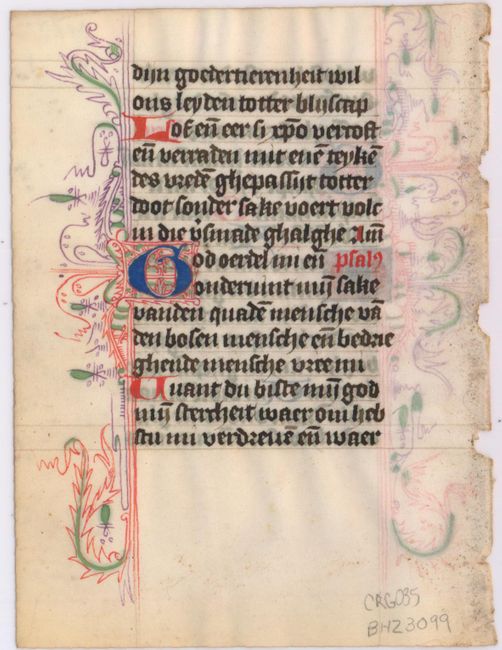 dijn goedertierenheit wil
ons leyden totter bliscap
Lof eñ eer si xpō verrost
eñ verraden mit enē teykē
des vredē ghepassijt totter
doot sonder sake voert volc
in die v̄smade ghalghe Am̄
God oerdel mi eñ psalꝰ
onderuint mijn sake
vanden quadē mensche vā
den bosen mensche eñ bedrie
ghende mensche vree mi
Want du biste mijn god
mijn stercheit waer om heb
stu mi verdreuē eñ waer
CRG035
BHZ3099